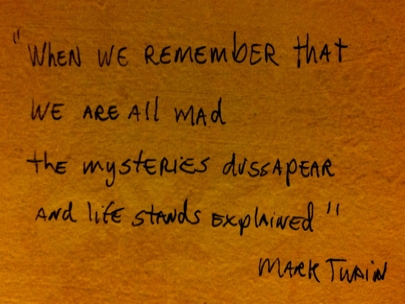 "WHEN WE REMEMbER thAt
WE ARE All MAd
thE mystERIES dussApEAR
ANd lifE stANds ExplAiNEd"
MARK TwAiN